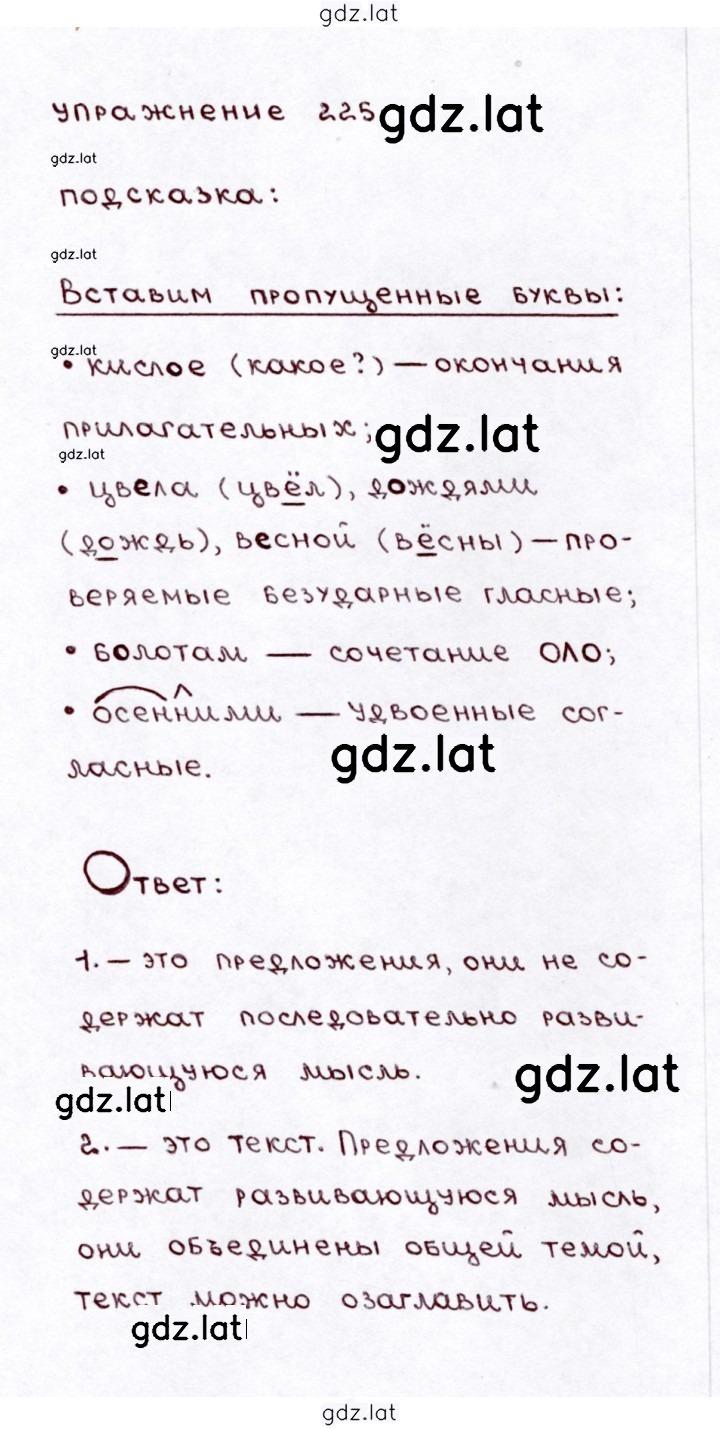 gdz.lat
упражнение 225 gdz.lat
gdz.lat
подсказка:
gdz.lat
Вставим пропущенные буквы:
gdz.lat
• кислое (какое?) — окончания
прилагательных; gdz.lat
gdz.lat
• цвела (цвёл), дождями
(дождь), весной (вёсны) — про-
веряемые безударные гласные;
• болотам — сочетание ОЛО;
• осенними — удвоенные сог-
ласные. gdz.lat
Ответ:
1. — это предложения, они не со-
держат последовательно разви-
вающуюся мысль. gdz.lat
gdz.lat
2. — это текст. Предложения со-
держат развивающуюся мысль,
они объединены общей темой,
текст можно озаглавить.
gdz.lat
gdz.lat